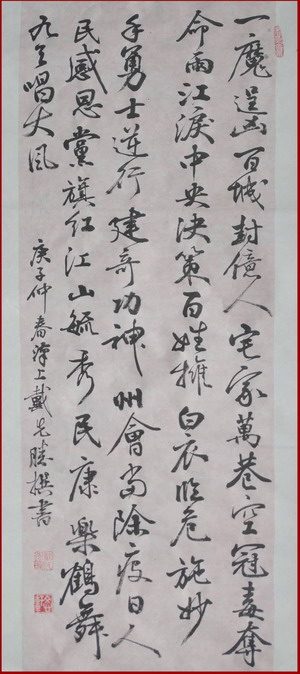 一魔逞凶百城封億人宅家萬巷空冠毒奪
命兩江淚中央決策百姓擁白衣臨危施妙
手勇士逆行建奇功神州會當除疫日人
民感恩黨旗紅江山毓秀民康樂鶴舞
九天唱大風
庚子仲春漳上戴先勝撰書